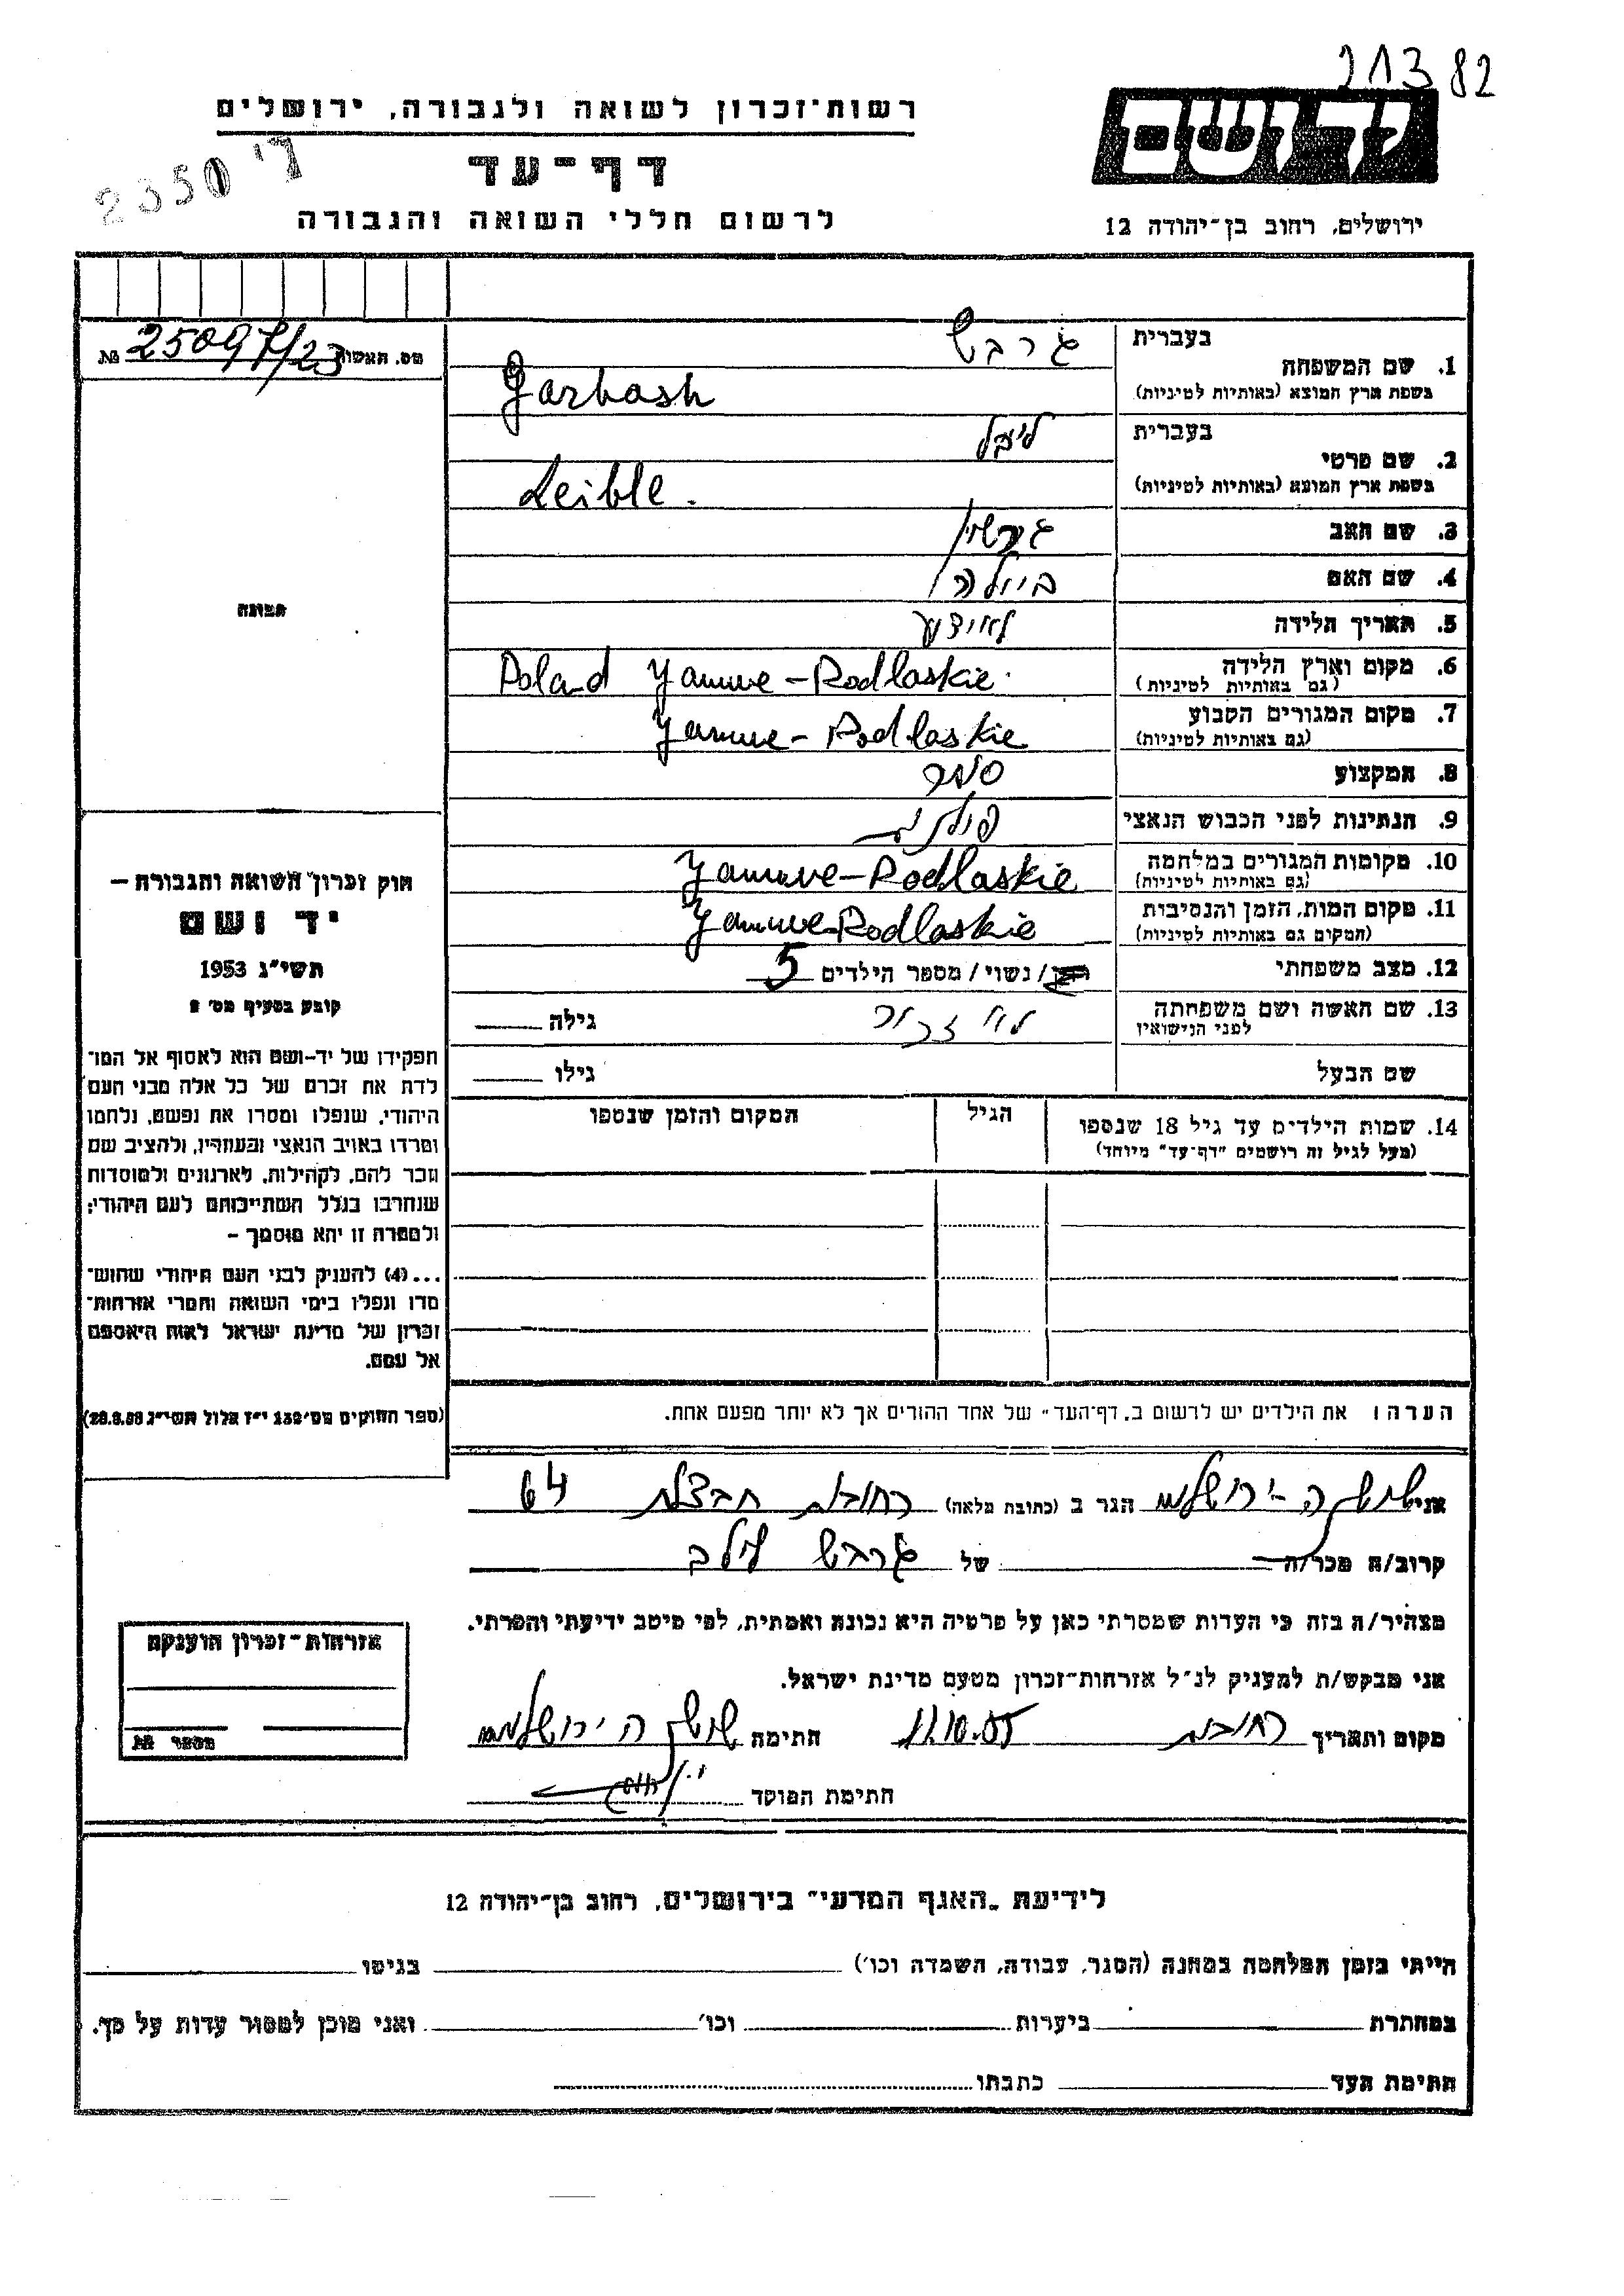 21382
רשות־זכרון לשואה ולגבורה, ירושלים
יד ושם
2350 ד'
דף־עד
לרשום חללי השואה והגבורה
ירושלים, רחוב בן־יהודה 12
מס. האשות 25097/23 №
בעברית גרבש
1. שם המשפחה
בשפת ארץ המוצא (באותיות לטיניות) Garbash
בעברית לייבל
2. שם פרטי
בשפת ארץ המוצא (באותיות לטיניות) Leible.
3. שם האב גרשון
4. שם האם ביילה
5. תאריך הלידה לא יודע
6. מקום וארץ הלידה Poland Yanuve-Podlaskie
(גם באותיות לטיניות)
7. מקום המגורים הקבוע Yanuve-Podlaskie
(גם באותיות לטיניות)
8. המקצוע סוחר
9. הנתינות לפני הכבוש הנאצי פולנית
10. מקומות המגורים במלחמה Yanuve-Podlaskie
(גם באותיות לטיניות)
11. מקום המות, הזמן והנסיבות Yanuve Podlaskie
(המקום גם באותיות לטיניות)
12. מצב משפחתי / נשוי / מספר הילדים 5
13. שם האשה ושם משפחתה לא זכור גילה
לפני הנישואין
שם הבעל גילו
14. שמות הילדים עד גיל 18 שנספו הגיל המקום והזמן שנספו
(מעל לגיל זה רושמים "דף־עד" מיוחד)
תמונה
חוק זכרון השואה והגבורה —
יד ושם
תשי"ג 1953
קובע בסעיף מס' 2
תפקידו של יד-ושם הוא לאסוף אל המו־
לדת את זכרם של כל אלה מבני העם
היהודי, שנפלו ומסרו את נפשם, נלחמו
ומרדו באויב הנאצי ובעוזריו, ולהציב שם
וזכר להם, לקהילות, לארגונים ולמוסדות
שנחרבו בגלל השתייכותם לעם היהודי;
ולמטרה זו יהא מוסמך –
...(4) להעניק לבני העם היהודי שהוש־
מדו ונפלו בימי השואה והמרי אזרחות־
זכרון של מדינת ישראל לאות היאספם
אל עמם.
(ספר החוקים מס' 132 י"ז אלול תשי"ג 28.8.53)
הערה: את הילדים יש לרשום ב„דף־העד" של אחד ההורים אך לא יותר מפעם אחת.
אני ירושלמי הגר ב (כתובת מלאה) רחובות חבצלת 64
קרוב/ה מכר/ה של גרבש לייב
מצהיר/ה בזה כי העדות שמסרתי כאן על פרטיה היא נכונה ואמתית, לפי מיטב ידיעתי והכרתי.
אני מבקש/ת להעניק לנ"ל אזרחות־זכרון מטעם מדינת ישראל.
מקום ותאריך רחובות 11.10.55 חתימה ירושלמי
חתימת הפוקד
אזרחות־זכרון הוענקה
מספר №
לידיעת „האגף המדעי" בירושלים, רחוב בן־יהודה 12
הייתי בזמן המלחמה במחנה (הסגר, עבודה, השמדה וכו') בגיטו
במחתרת ביערות וכו' ואני מוכן למסור עדות על כך.
חתימת העד כתבתו